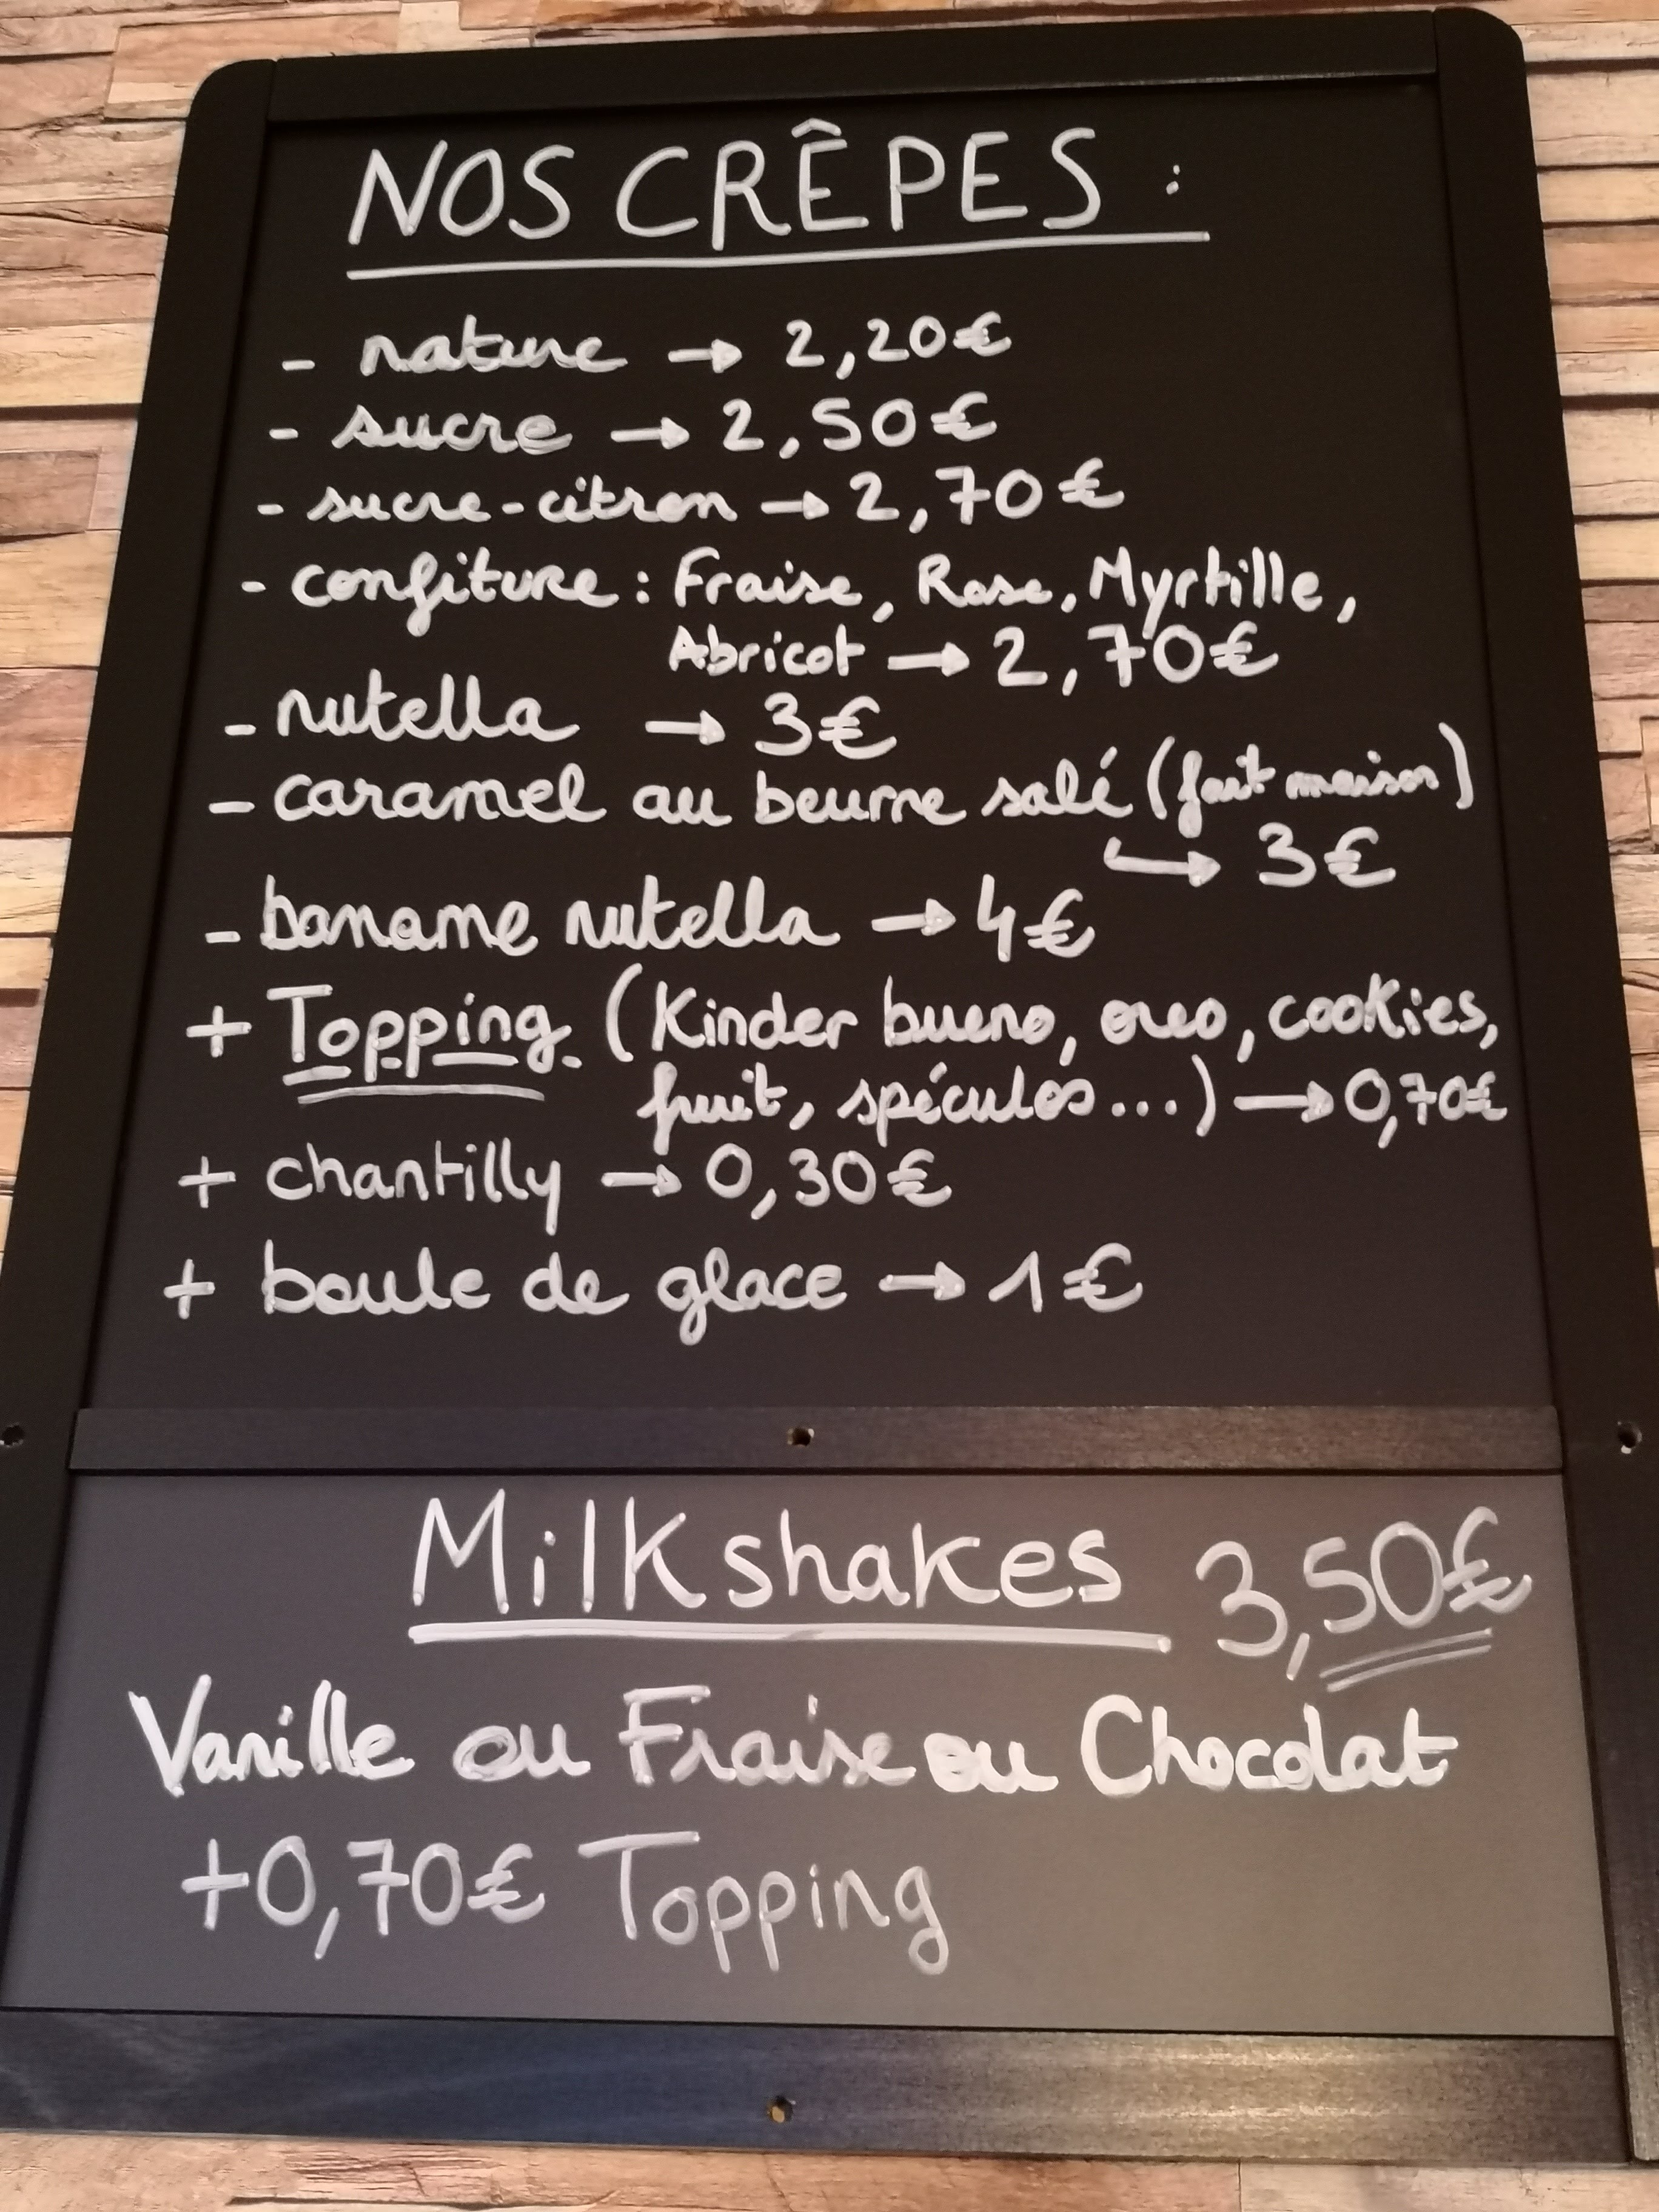 NOS CRÊPES :
- nature → 2,20€
- sucre → 2,50€
- sucre-citron → 2,70€
- confiture : Fraise, Rose, Myrtille,
Abricot → 2,70€
- nutella → 3€
- caramel au beurre salé (fait maison)
↳ 3€
- banane nutella → 4€
+ Topping (Kinder bueno, oreo, cookies,
fruit, spéculos...) → 0,70€
+ chantilly → 0,30€
+ boule de glace → 1€
Milkshakes 3,50€
Vanille ou Fraise ou Chocolat
+0,70€ Topping